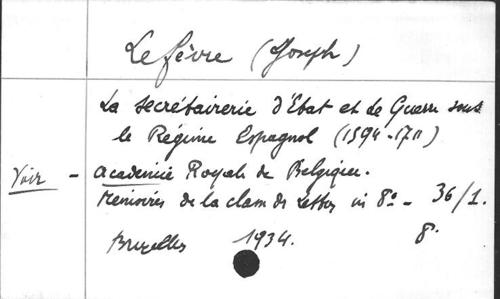 Lefèvre (Joseph)
La secrétairerie d'Etat et de Guerre sous
le Régime Espagnol (1594-1711)
Voir - Academie Royale de Belgique.
Mémoires de la classe des Lettres in 8º - 36/1.
Bruxelles 1934. 8.